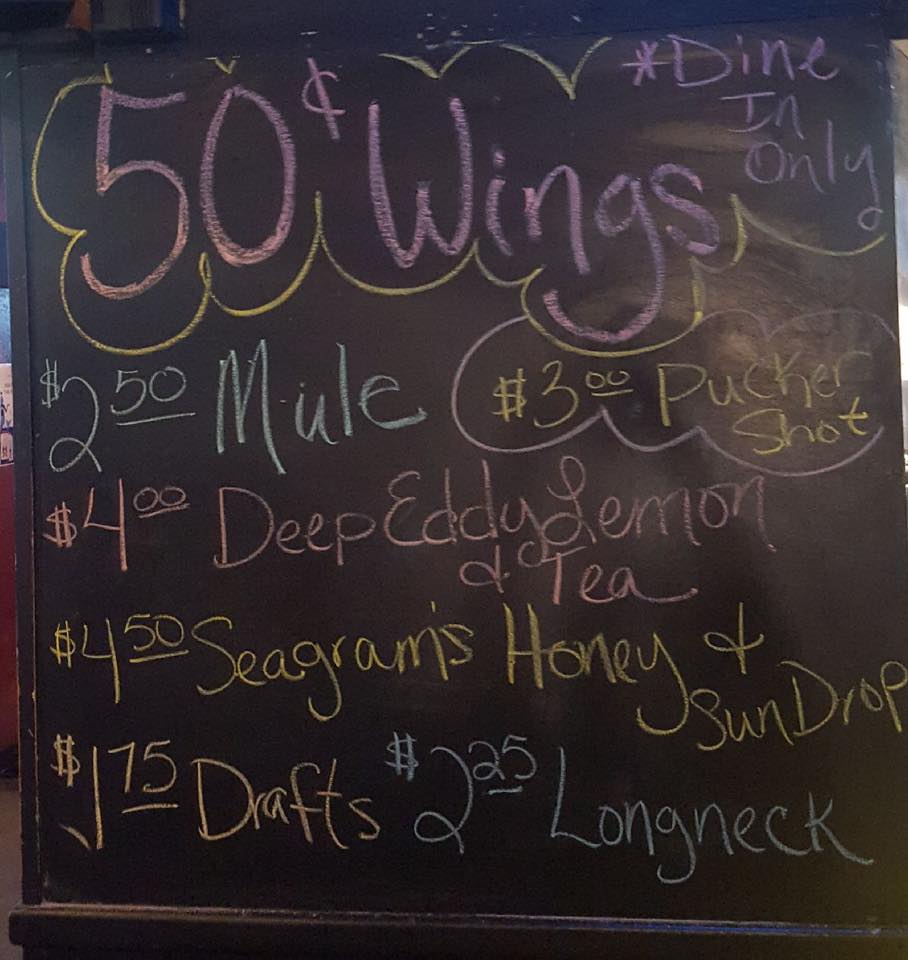 50¢ Wings
*Dine
In
Only
$2.50 Mule
$3.00 Pucker
Shot
$4.00 Deep Eddy Lemon
& Tea
$4.50 Seagram's Honey &
Sun Drop
$1.75 Drafts
$2.25 Longneck